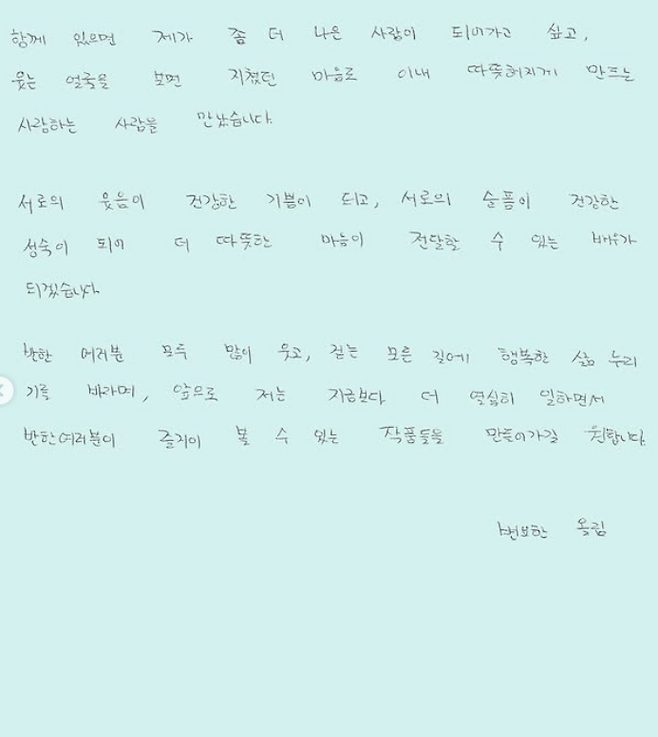 함께 있으면 제가 좀 더 나은 사람이 되어가고 싶고,
웃는 얼굴을 보면 지쳤던 마음도 이내 따뜻해지게 만드는
사랑하는 사람을 만났습니다.
서로의 웃음이 건강한 기쁨이 되고, 서로의 슬픔이 건강한
성숙이 되어 더 따뜻한 마음이 전달할 수 있는 배우가
되겠습니다.
반한 여러분 모두 많이 웃고, 걷는 모든 길에 행복한 삶 누리
기를 바라며, 앞으로 저는 지금보다 더 열심히 일하면서
반한여러분이 즐거이 볼 수 있는 작품들을 만들어가길 원합니다.
변요한 올림